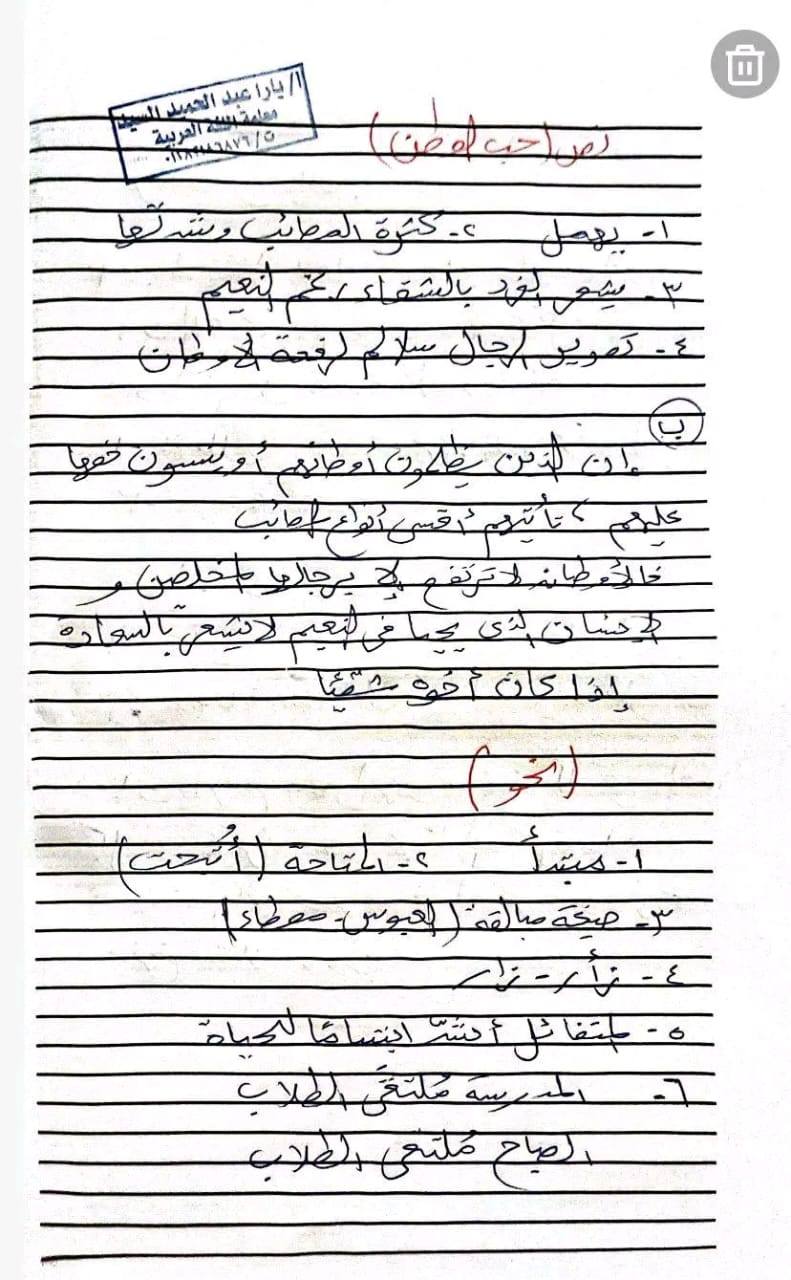 أ/ يارا عبد الحميد السيد
معلمة اللغة العربية
نص (حب الوطن)
١- يهمل ٢- كثرة المصائب وشدتها
٣- يشعر الفرد بالشقاء رغم النعيم
٤- تصوير الرجال سلالم لرفعة الأوطان
ب
إن الذين يظلمون أوطانهم أو ينسون حقها
عليهم، تأتيهم أقسى أنواع المصائب
فالأوطان لا ترتفع إلا برجالها المخلصين و
الإنسان الذي يحيا في النعيم لا يشعر بالسعادة
إذا كان أخوه شقيًّا
(النحو)
١- مبتدأ ٢- المتاحة (أُتيحت)
٣- صيغة مبالغة (العبوس - معطاء)
٤- زأر - زار
٥- المتفائل أشدّ ابتسامًا للحياة
٦- المدرسة مُلتقَى الطلاب
الصباح مُلتقى الطلاب